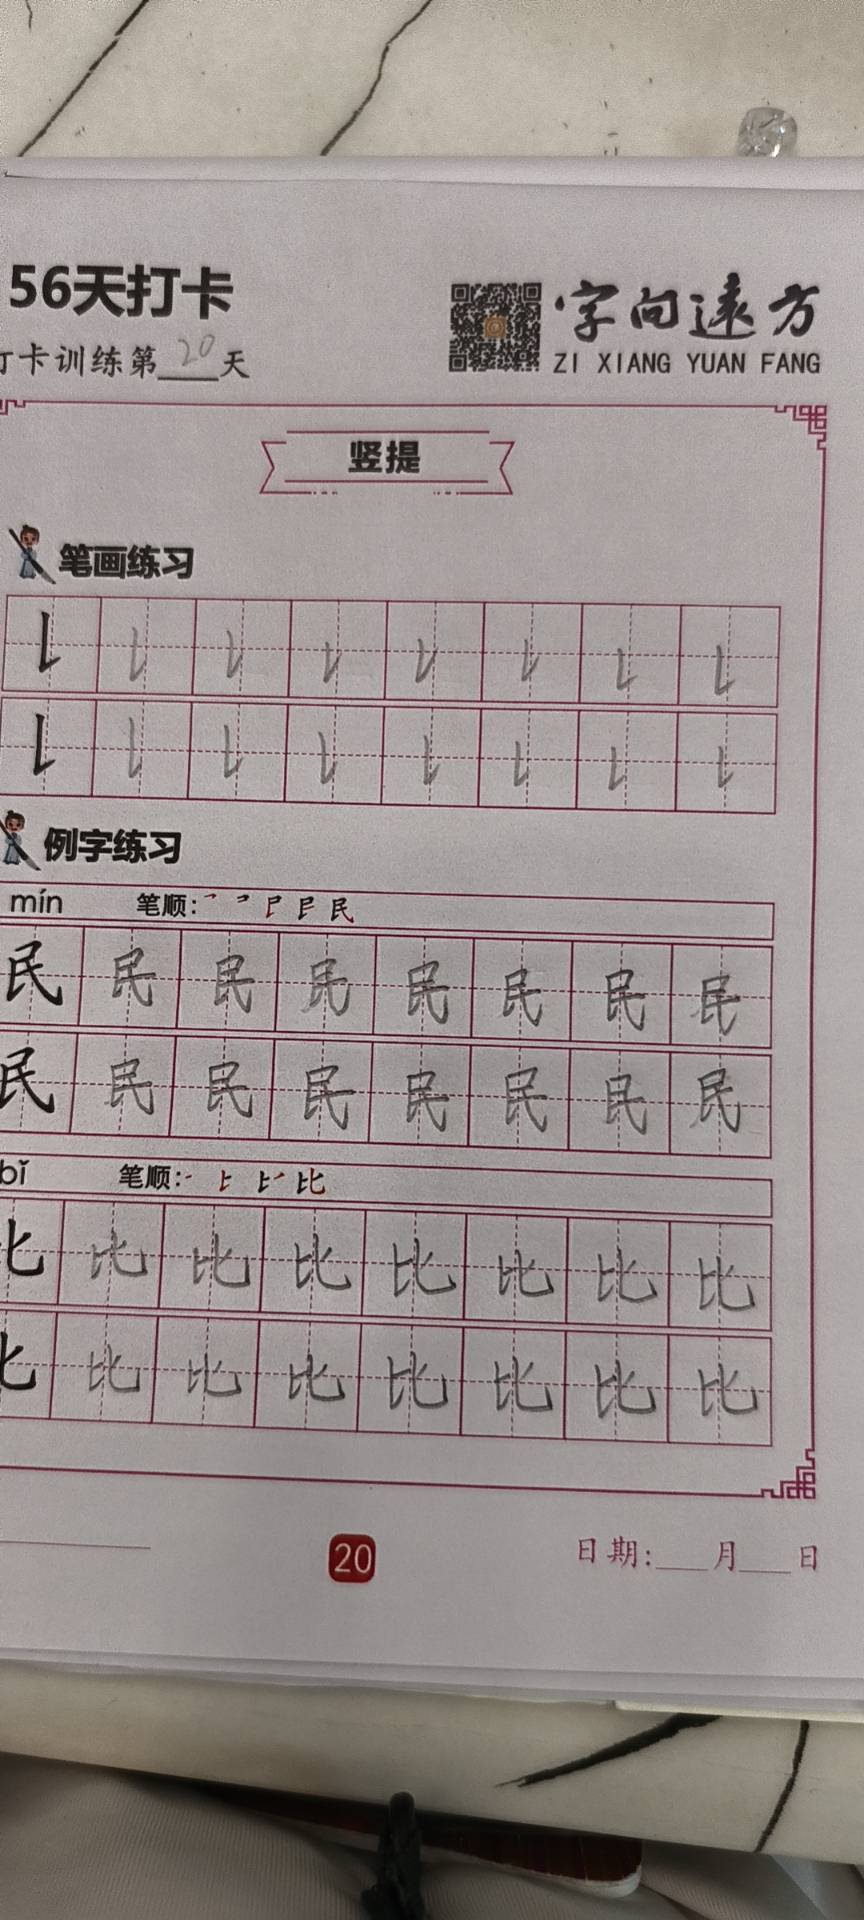 56天打卡
字向远方
打卡训练第20天
ZI XIANG YUAN FANG
竖提
笔画练习
例字练习
mín 笔顺:
民 民 民 民 民 民 民 民
民 民 民 民 民 民 民 民
bǐ 笔顺:
比 比 比 比 比 比 比 比
比 比 比 比 比 比 比 比
20
日期:___月___日